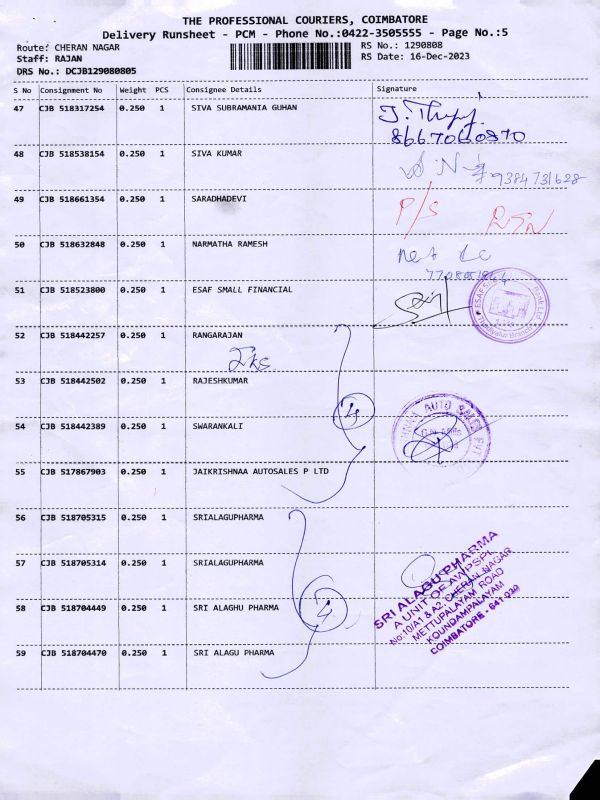 THE PROFESSIONAL COURIERS, COIMBATORE
Delivery Runsheet - PCM - Phone No.:0422-3505555 - Page No.:5
Route: CHERAN NAGAR
RS No.: 1290808
Staff: RAJAN
RS Date: 16-Dec-2023
DRS No.: DCJB129080805
S No Consignment No Weight PCS Consignee Details Signature
47 CJB 518317254 0.250 1 SIVA SUBRAMANIA GUHAN
8667060870
48 CJB 518538154 0.250 1 SIVA KUMAR
9384731628
49 CJB 518661354 0.250 1 SARADHADEVI P/S RTN
50 CJB 518632848 0.250 1 NARMATHA RAMESH
51 CJB 518523800 0.250 1 ESAF SMALL FINANCIAL
52 CJB 518442257 0.250 1 RANGARAJAN
53 CJB 518442502 0.250 1 RAJESHKUMAR
54 CJB 518442389 0.250 1 SWARANKALI
4
55 CJB 517867903 0.250 1 JAIKRISHNAA AUTOSALES P LTD
56 CJB 518705315 0.250 1 SRIALAGUPHARMA
57 CJB 518705314 0.250 1 SRIALAGUPHARMA
58 CJB 518704449 0.250 1 SRI ALAGHU PHARMA
59 CJB 518704470 0.250 1 SRI ALAGU PHARMA
SRI ALAGU PHARMA
A UNIT OF AWPSPL
No:10/A1 & A2, CHERAN NAGAR
METTUPALAYAM ROAD
KOUNDAMPALAYAM
COIMBATORE - 641 030